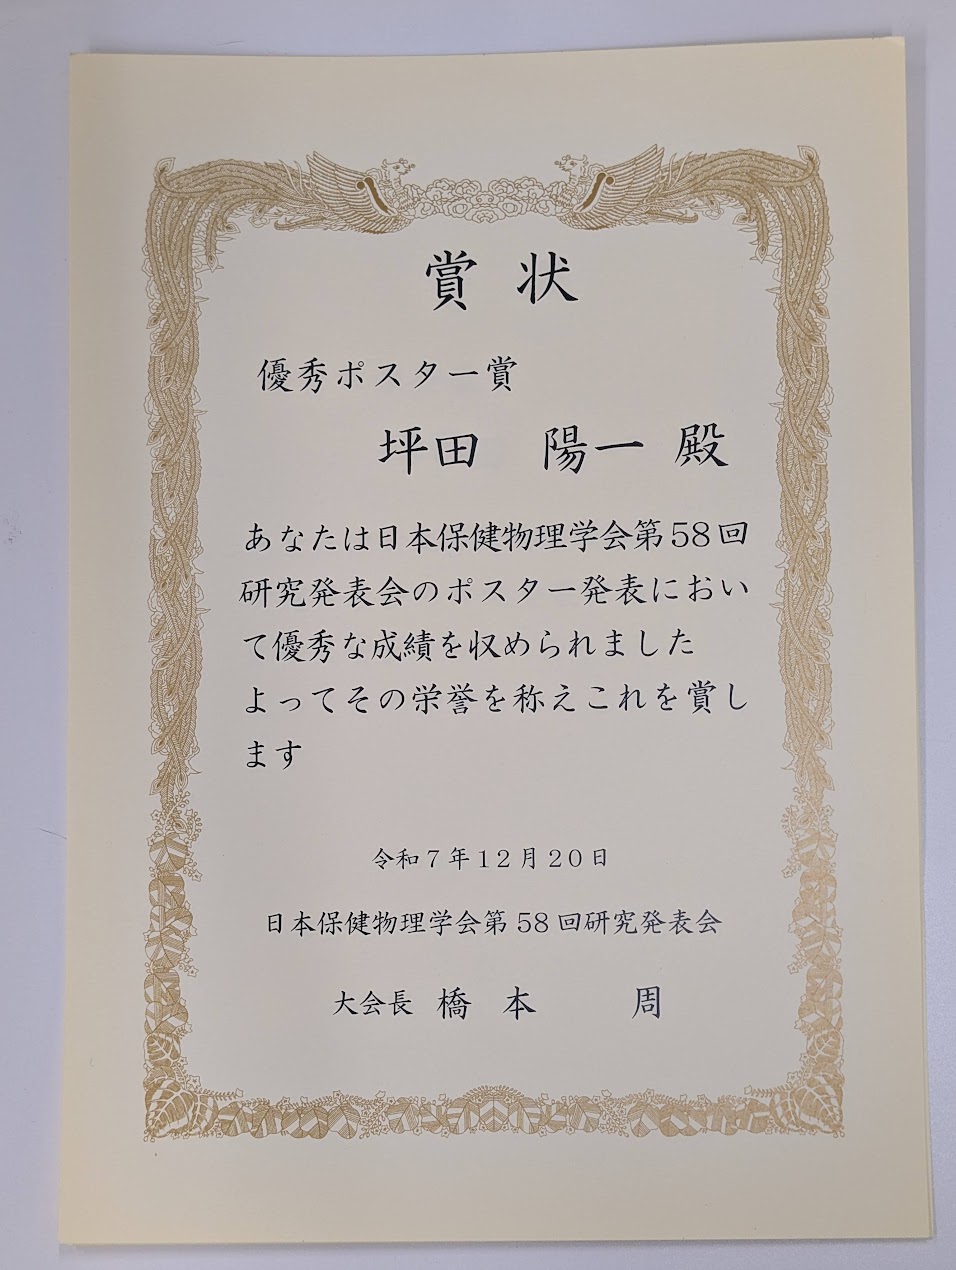 賞状
優秀ポスター賞
坪田　陽一 殿
あなたは日本保健物理学会第58回
研究発表会のポスター発表におい
て優秀な成績を収められました
よってその栄誉を称えこれを賞し
ます
令和７年１２月２０日
日本保健物理学会第 58 回研究発表会
大会長 橋本　周